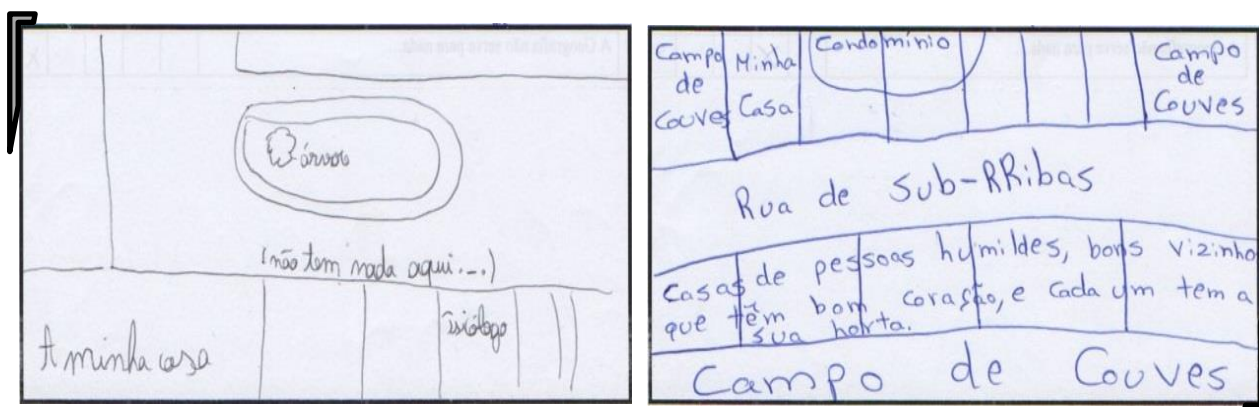 árvore
(não tem nada aqui...)
A minha casa
Campo de Couves
Minha Casa
Condomínio
Campo de Couves
Rua de Sub-RRibas
Casas de pessoas humildes, bons vizinho
que têm bom coração, e cada um tem a
sua horta.
Campo de Couves